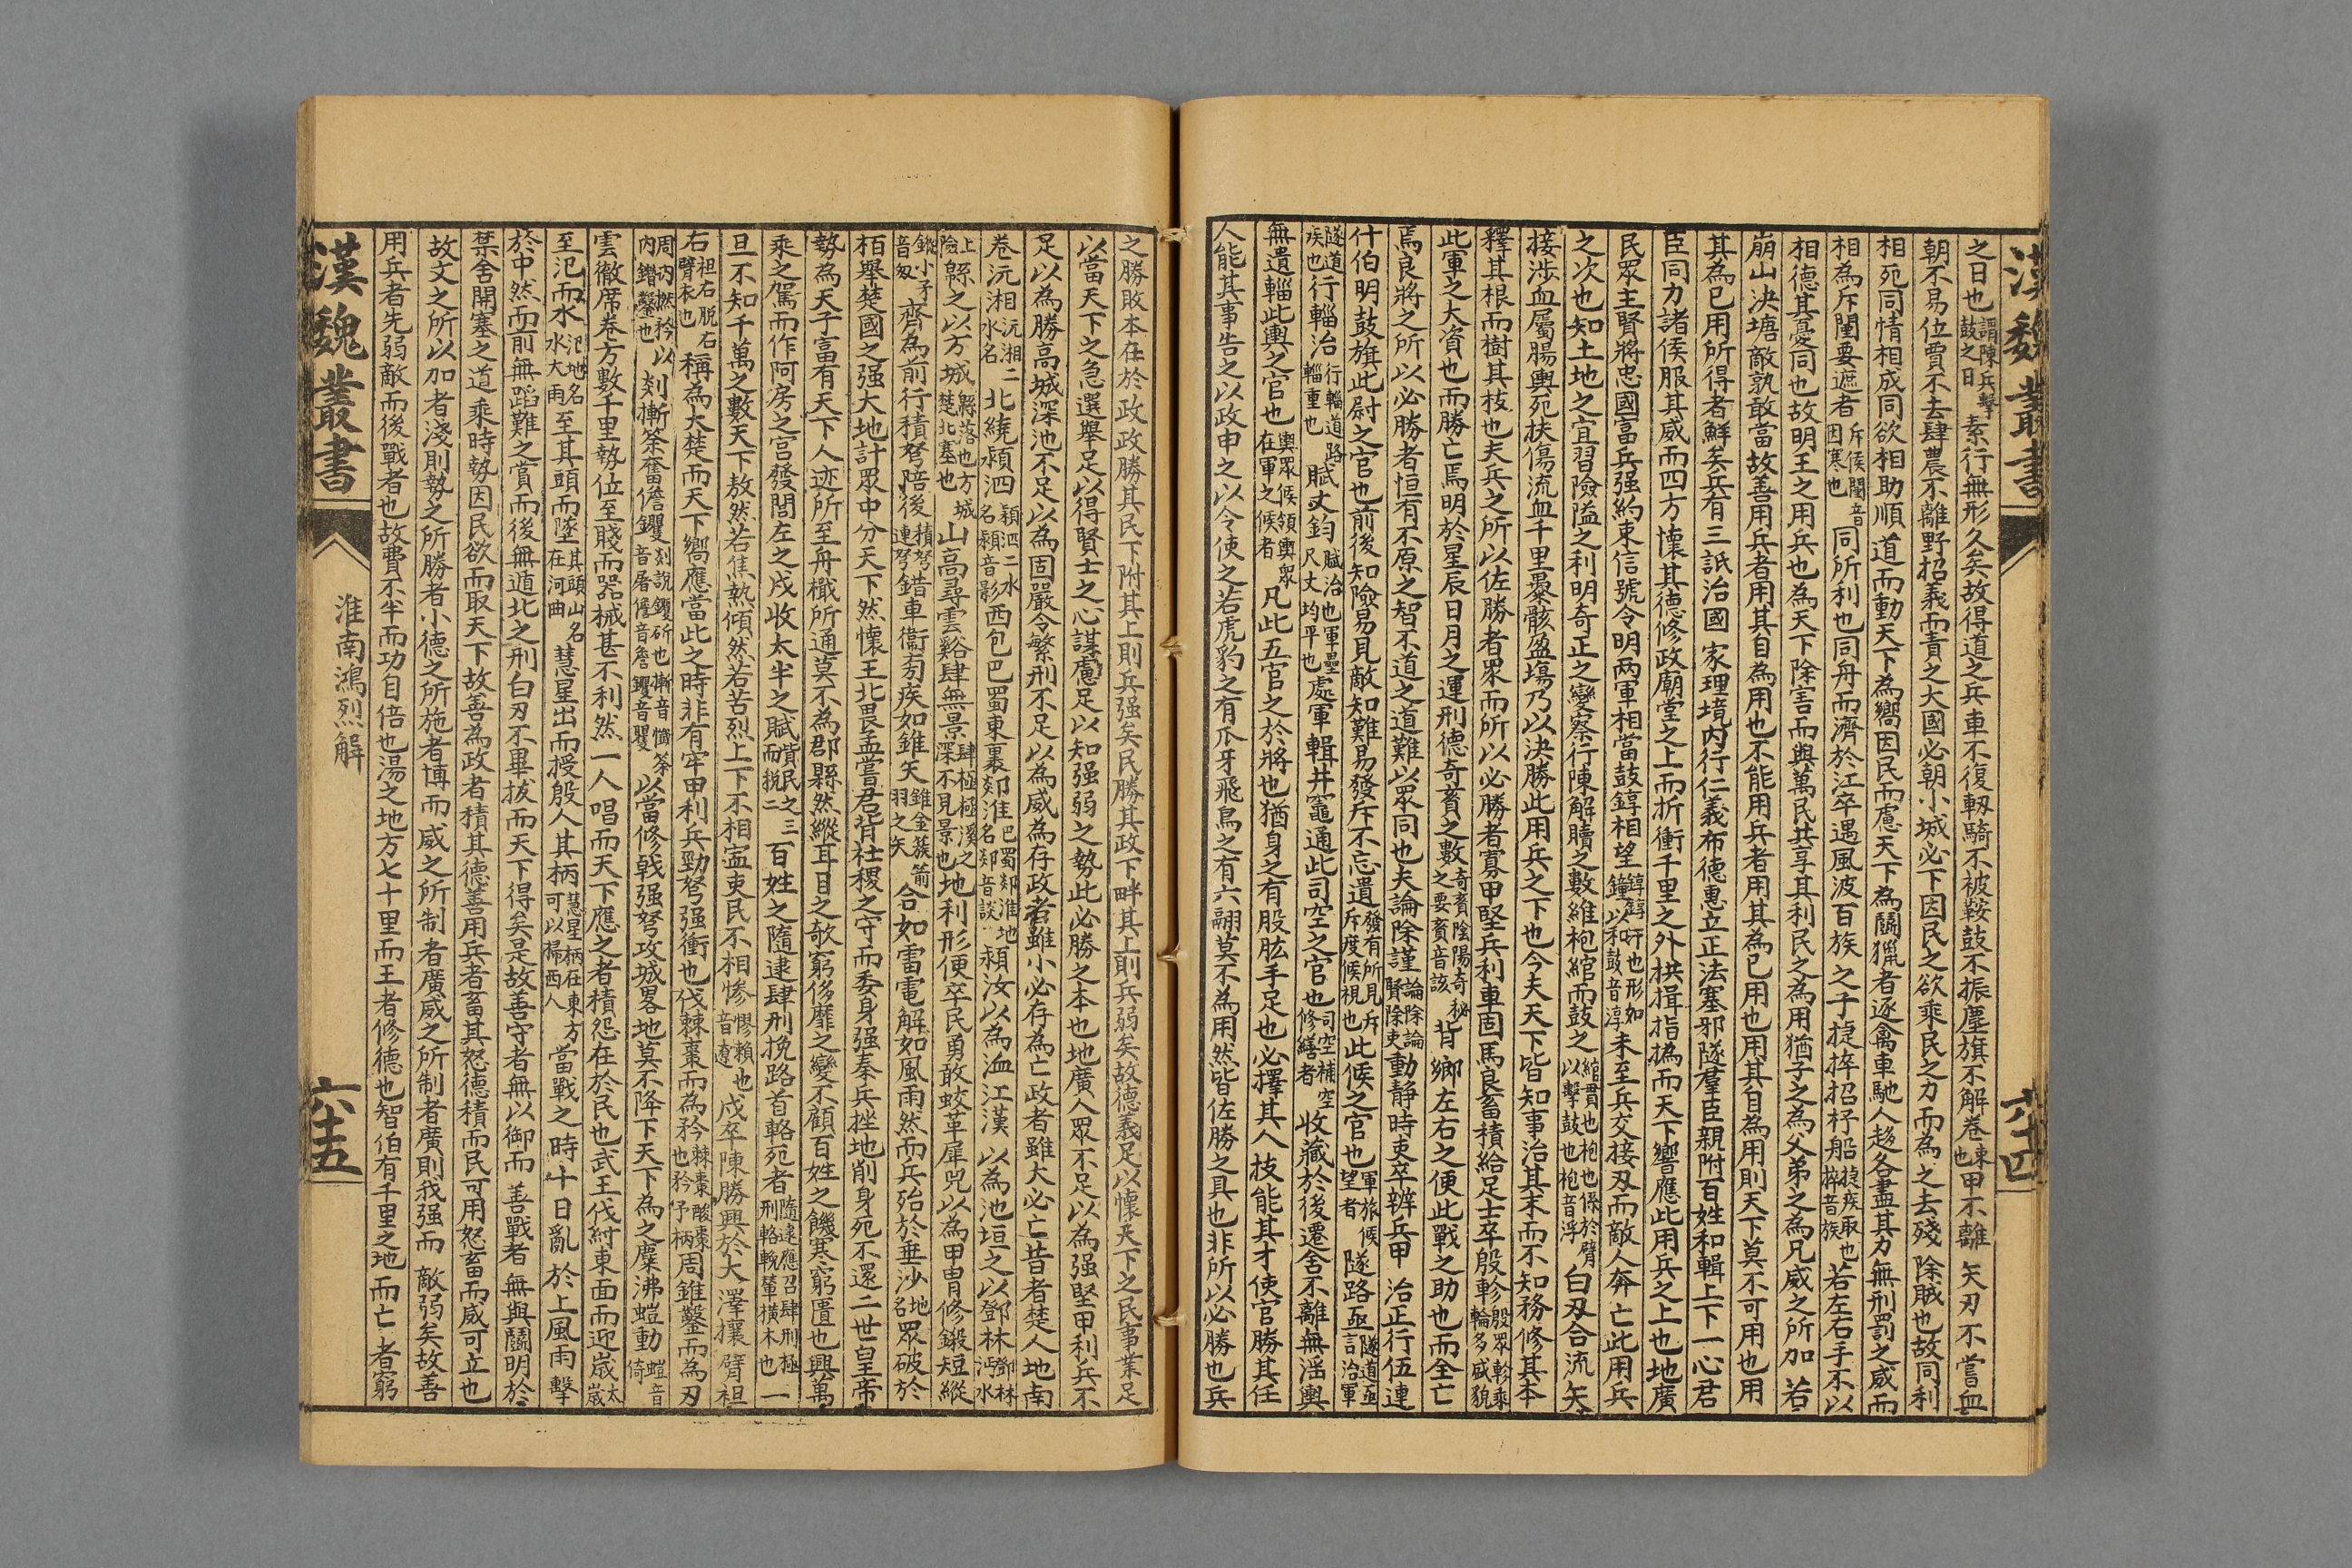 漢魏叢書
六十四
之日也謂陳兵擊鼓之日素行無形久矣故得道之兵車不復軔騎不被鞍鼓不振塵旗不解卷束也甲不離矢刃不嘗血
朝不易位賈不去肆農不離野招義而責之大國必朝小城必下因民之欲乘民之力而為之去殘除賊也故同利
相死同情相成同欲相助順道而動天下為嚮因民而慮天下為鬭獵者逐禽車馳人趍各盡其力無刑罰之威而
相為斥闉要遮者斥候闉音因寒也同所利也同舟而濟於江卒遇風波百族之子捷捽招杼船捷疾取也捽昔族若左右手不以
相德其憂同也故明王之用兵也為天下除害而與萬民共享其利民之為用猶子之為父弟之為兄威之所加若
崩山決塘敵孰敢當故善用兵者用其自為用也不能用兵者用其為已用也用其自為用則天下莫不可用也用
其為已用所得者鮮矣兵有三詆治國家理境內行仁義布德惠立正法塞邪隧羣臣親附百姓和輯上下一心君
臣同力諸侯服其威而四方懷其德修政廟堂之上而折衝千里之外拱揖指撝而天下響應此用兵之上也地廣
民眾主賢將忠國富兵强約束信號令明兩軍相當鼓錞相望錞錞于也形如鐘以和鼓音淳未至兵交接刃而敵人奔亡此用兵
之次也知土地之宜習險隘之利明奇正之變察行陳解贖之數維枹綰而鼓之綰貫也枹也係於臂以擊鼓也枹音浮白刃合流矢
接涉血屬腸輿死扶傷流血千里暴骸盈場乃以決勝此用兵之下也今夫天下皆知事治其末而不知務修其本
釋其根而樹其枝也夫兵之所以佐勝者眾而所以必勝者寡甲堅兵利車固馬良畜積給足士卒殷軫殷眾軫乘輪多盛貌
此軍之大資也而勝亡焉明於星辰日月之運刑德奇賌之數奇賌陰陽奇秘之要賌音該背鄉左右之便此戰之助也而全亡
焉良將之所以必勝者恒有不原之智不道之道難以眾同也夫論除謹論除論賢除吏動靜時吏卒辨兵甲治正行伍連
什伯明鼓旗此尉之官也前後知險易見敵知難易發斥不忘遺發有所見斥斥度候視也此候之官也軍旅候望者隧路亟隧道亟言治軍
隧道疾也行輜治行輜道路輜重也賦丈鈞賦治也軍壘尺丈均平也處軍輯井竈通此司空之官也司空補空修繕者收藏於後遷舍不離無淫輿
無遺輜此輿之官也輿眾候領輿眾在軍之候者凡此五官之於將也猶身之有股肱手足也必擇其人技能其才使官勝其任
人能其事告之以政申之以令使之若虎豹之有爪牙飛鳥之有六翮莫不為用然皆佐勝之具也非所以必勝也兵
之勝敗本在於政政勝其民下附其上則兵强矣民勝其政下畔其上則兵弱矣故德義足以懷天下之民事業足
以當天下之急選舉足以得賢士之心謀慮足以知强弱之勢此必勝之本也地廣人眾不足以為强堅甲利兵不
足以為勝高城深池不足以為固嚴令繁刑不足以為威為存政者雖小必存為亡政者雖大必亡昔者楚人地南
卷沅湘沅湘二水名北繞潁泗潁泗二水名潁音影西包巴蜀東裹郯淮巴蜀郯淮地名郯音談潁汝以為洫江漢以為池垣之以鄧林鄧林沔水
上險緜之以方城緜落也方城楚北塞也山高尋雲谿肆無景肆極極溪之深不見景也地利形便卒民勇敢蛟革犀兕以為甲冑修鎩短縱
鏦小矛音匆齊為前行積弩陪後積弩連弩錯車衞旁疾如錐矢錐金簇箭羽之矢合如雷電解如風雨然而兵殆於垂沙地名眾破於
栢舉楚國之强大地計眾中分天下然懷王北畏孟嘗君背社稷之守而委身强秦兵挫地削身死不還二世皇帝
勢為天子富有天下人迹所至舟檝所通莫不為郡縣然縱耳目之欲窮侈靡之變不顧百姓之饑寒窮匱也興萬
乘之駕而作阿房之宮發閭左之戍收太半之賦貲民之三而税二百姓之隨逮肆刑挽路首輅死者隨逮應召肆刑極刑輅輓輦橫木也一
旦不知千萬之數天下敖然若焦熱傾然若苦烈上下不相寍吏民不相憀憀賴也音遼戍卒陳勝興於大澤攘臂袒
右袒右脫右臂衣也稱為大楚而天下嚮應當此之時非有牢甲利兵勁弩强衝也伐棘棗而為矜棘棗酸棗也矜矛柄周錐鑿而為刃
周內撚矜內鐕鑿也以剡摲筡奮儋钁剡銳钁斫也摲音懺筡音屠儋音詹钁音矍以當修戟强弩攻城畧地莫不降下天下為之麋沸螘動螘音倚
雲徹席卷方數千里勢位至賤而器械甚不利然一人唱而天下應之者積怨在於民也武王伐紂東面而迎歲太歲
至氾而水氾地名水大雨至共頭而墜共頭山名在河曲慧星出而授殷人其柄慧星柄在東方可以掃西人當戰之時十日亂於上風雨擊
於中然而前無蹈難之賞而後無遁北之刑白刃不畢拔而天下得矣是故善守者無以御而善戰者無與鬭明於
禁舍開塞之道乘時勢因民欲而取天下故善為政者積其德善用兵者畜其怒德積而民可用怒畜而威可立也
故文之所以加者淺則勢之所勝者小德之所施者博而威之所制者廣威之所制者廣則我强而敵弱矣故善
用兵者先弱敵而後戰者也故費不半而功自倍也湯之地方七十里而王者修德也智伯有千里之地而亡者窮
漢魏叢書
淮南鴻烈解
六十五